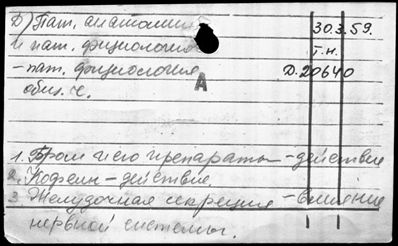 5) Пат. анатомия 30.3.59.
и пат. физиология Т.н.
– пат. физиология Д.20640
общ. ч. А
1. Бром и его препараты – действие
2. Кофеин – действие.
3. Желудочная секреция – влияние
нервной системы.